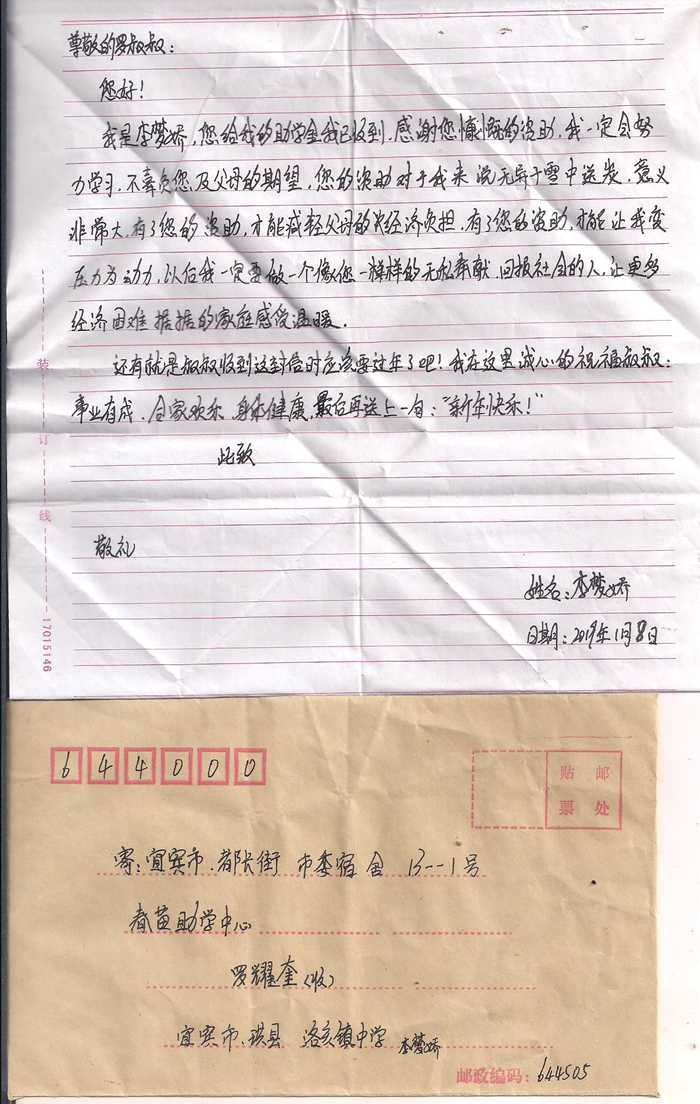 尊敬的罗叔叔：
您好！
我是李梦娇，您给我的助学金我已收到．感谢您慷慨的资助，我一定会努
力学习．不辜负您及父母的期望，您的资助对于我来说无异于雪中送炭．意义
非常大．有了您的资助，才能减轻父母的经济负担．有了您的资助，才能让我变
压力为动力，以后我一定要做一个像您一样样的无私奉献．回报社会的人，让更多
经济困难拮据的家庭感受温暖．
还有就是叔叔收到这封信时应该要过年了吧！我在这里诚心的祝福叔叔：
事业有成．合家欢乐．身永健康，最后再送上一句："新年快乐！"
此致
敬礼
姓名：李梦娇
日期：2019年1月8日
装订线
17015146
644000
贴邮
票处
寄：宜宾市．都长街 市委宿舍 13--1号
春苗助学中心
罗耀奎（收）
宜宾市．珙县 洛亥镇中学 李梦娇
邮政编码：644505